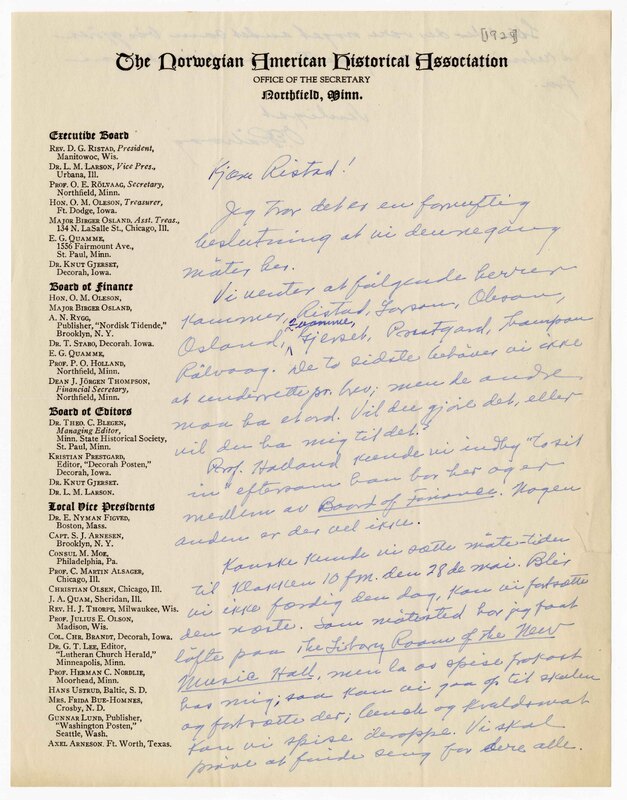 [1929]
The Norwegian American Historical Association
OFFICE OF THE SECRETARY
Northfield, Minn.
Executive Board
REV. D. G. RISTAD, President,
Manitowoc, Wis.
DR. L. M. LARSON, Vice Pres.,
Urbana, Ill.
PROF. O. E. RÖLVAAG, Secretary,
Northfield, Minn.
HON. O. M. OLESON, Treasurer,
Ft. Dodge, Iowa.
MAJOR BIRGER OSLAND, Asst. Treas.,
134 N. LaSalle St., Chicago, Ill.
E. G. QUAMME,
1556 Fairmount Ave.,
St. Paul, Minn.
DR. KNUT GJERSET,
Decorah, Iowa.
Board of Finance
HON. O. M. OLESON,
MAJOR BIRGER OSLAND,
A. N. RYGG,
Publisher, "Nordisk Tidende,"
Brooklyn, N. Y.
DR. T. STABO, Decorah. Iowa.
E. G. QUAMME,
PROF. P. O. HOLLAND,
Northfield, Minn.
DEAN J. JÖRGEN THOMPSON,
Financial Secretary,
Northfield, Minn.
Board of Editors
DR. THEO. C. BLEGEN,
Managing Editor,
Minn. State Historical Society,
St. Paul, Minn.
KRISTIAN PRESTGARD,
Editor, "Decorah Posten,"
Decorah, Iowa.
DR. KNUT GJERSET.
DR. L. M. LARSON.
Local Vice Presidents
DR. E. NYMAN FIGVED,
Boston, Mass.
CAPT. S. J. ARNESEN,
Brooklyn, N. Y.
CONSUL M. MOE,
Philadelphia, Pa.
PROF. C. MARTIN ALSAGER,
Chicago, Ill.
CHRISTIAN OLSEN, Chicago, Ill.
J. A. QUAM, Sheridan, Ill.
REV. H. J. THORPE, Milwaukee, Wis.
PROF. JULIUS E. OLSON,
Madison, Wis.
COL. CHR. BRANDT, Decorah, Iowa.
DR. G. T. LEE, Editor,
"Lutheran Church Herald,"
Minneapolis, Minn.
PROF. HERMAN C. NORDLIE,
Moorhead, Minn.
HANS USTRUD, Baltic, S. D.
MRS. FRIDA BUE-HOMNES,
Crosby, N. D.
GUNNAR LUND, Publisher,
"Washington Posten,"
Seattle, Wash.
AXEL ARNESON. Ft. Worth, Texas.
Kjære Ristad!
Jeg tror det er en fornuftig
beslutning at vi denne gang
møter her.
Vi venter at følgende herrer
kommer, Ristad, Larson, Oleson,
Quamme,
Osland, Gjerset, Prestgard,
Rölvaag. De to sidste behøver vi ikke
at underrette pr. brev; men de andre
maa ha et ord. Vil du gjøre det, eller
vil du ha mig til det?
Prof. Holland kunde vi indby "to sit
in" eftersom han bor her og er
medlem av Board of Finance. Nogen
anden er der vel ikke.
Kanske kunde vi sætte møte-tiden
til klokken 10 fm. den 28de mai. Blir
vi ikke færdig den dag, kan vi fortsætte
den næste. Som møtested har jeg faat
løfte paa The Library Room of the New
Music Hall, men la os spise frokost
hos mig; saa kan vi gaa op til skolen
og fortsætte der; lunch og kveldsmat
kan vi spise deroppe. Vi skal
prøve at finde seng for dere alle.